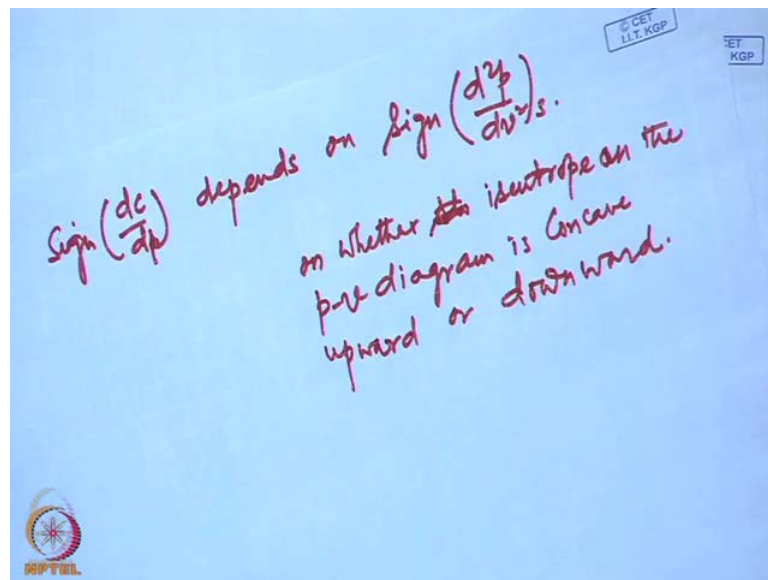 © CET
I.I.T. KGP
CET
KGP
Sign (dc/dp) depends on Sign (d²p/dv²)s.
on whether isentrope on the
p-v diagram is Concave
upward or downward.
NPTEL